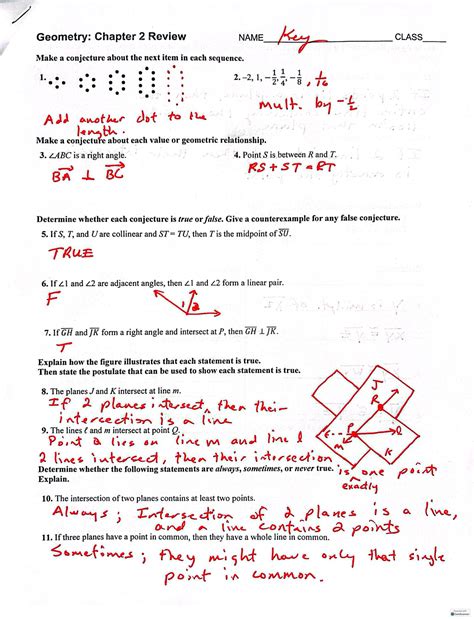 Geometry: Chapter 2 Review NAME Key CLASS
Make a conjecture about the next item in each sequence.
1. 2. –2, 1, –1/2, 1/4, –1/8, 1/16
mult. by –1/2
Add another dot to the
length.
Make a conjecture about each value or geometric relationship.
3. ∠ABC is a right angle. 4. Point S is between R and T.
BA ⊥ BC RS + ST = RT
Determine whether each conjecture is true or false. Give a counterexample for any false conjecture.
5. If S, T, and U are collinear and ST = TU, then T is the midpoint of SU.
TRUE
6. If ∠1 and ∠2 are adjacent angles, then ∠1 and ∠2 form a linear pair.
F 1 2
7. If GH and JK form a right angle and intersect at P, then GH ⊥ JK.
T
Explain how the figure illustrates that each statement is true.
Then state the postulate that can be used to show each statement is true.
8. The planes J and K intersect at line m.
If 2 planes intersect, then their
intersection is a line
9. The lines ℓ and m intersect at point Q.
Point lies on line m and line l
2 lines intersect, then their intersection is one point
exactly
J
R
P
Q
m
K
Determine whether the following statements are always, sometimes, or never true.
Explain.
10. The intersection of two planes contains at least two points.
Always; Intersection of 2 planes is a line,
and a line contains 2 points
11. If three planes have a point in common, then they have a whole line in common.
Sometimes; they might have only that single
point in common.